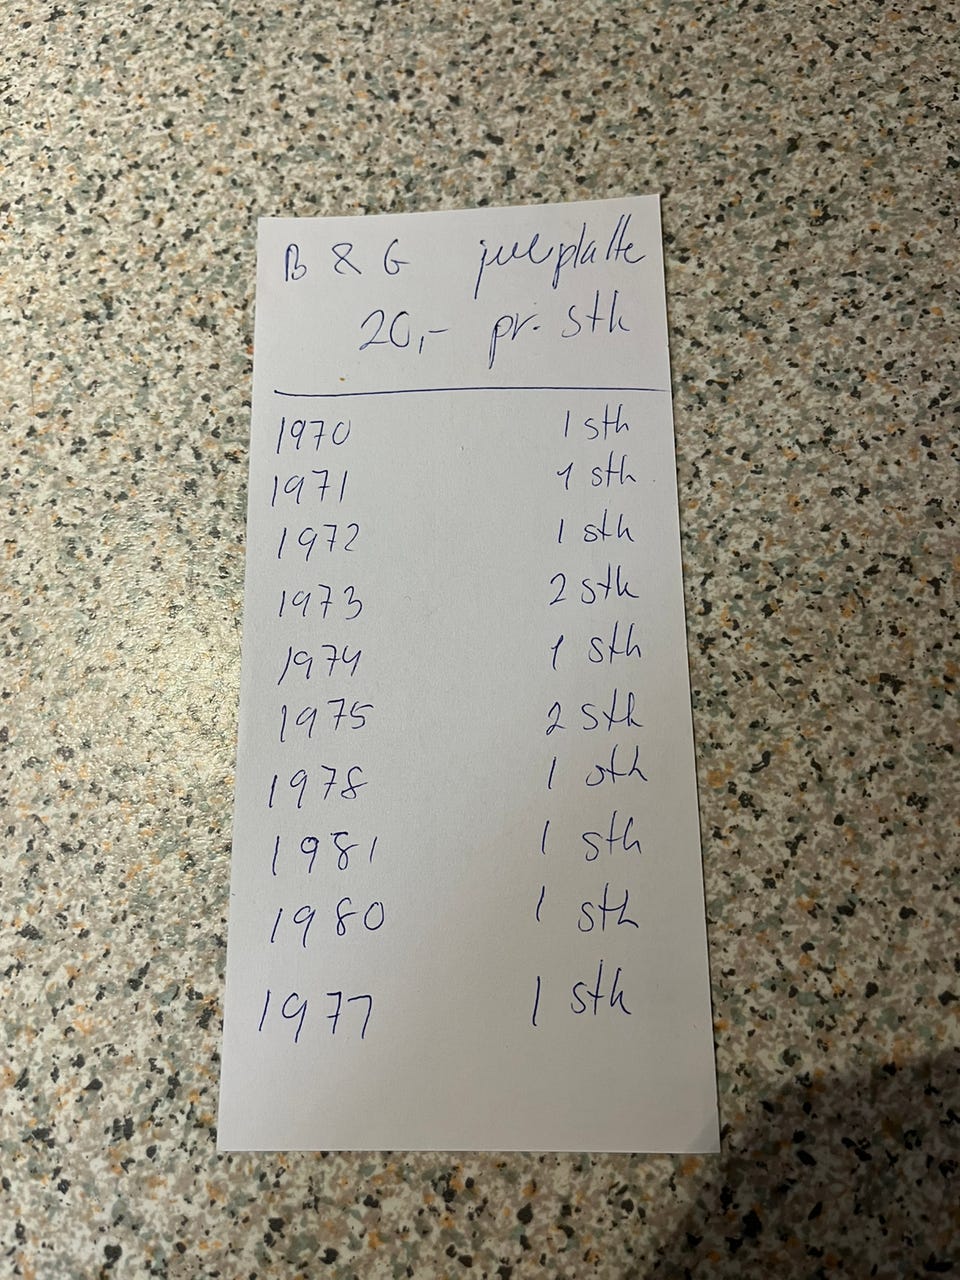 B & G juleplatte
20,- pr. stk
1970 1 stk
1971 1 stk
1972 1 stk
1973 2 stk
1974 1 stk
1975 2 stk
1978 1 stk
1981 1 stk
1980 1 stk
1977 1 stk